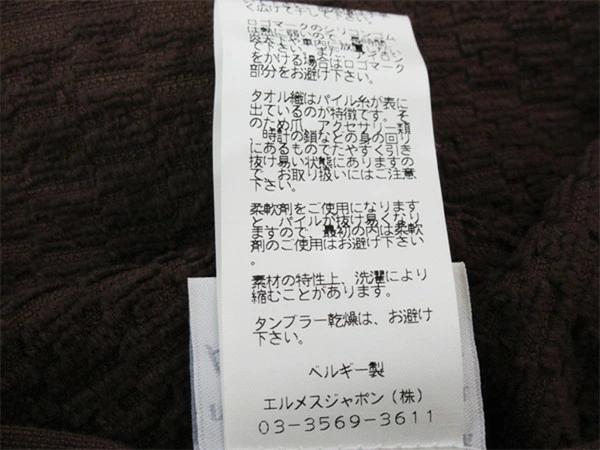 く広げて干して下さい。
ロゴマークのシリコンゴム
は熱に弱いので、長時間
炎天下や車内に放置しない
で下さい。また、アイロン
をかける場合はロゴマーク
部分をお避け下さい。
タオル織はパイル糸が表に
出ているのが特徴です。そ
のため爪、アクセサリー類
、時計の鎖などの身の回り
にあるものでたやすく引き
抜け易い状態にありますの
で、お取り扱いにはご注意
下さい。
柔軟剤をご使用になります
と、パイルが抜け易くなり
ますので、最初の内は柔軟
剤のご使用はお避け下さい
。
素材の特性上、洗濯により
縮むことがあります。
タンブラー乾燥は、お避け
下さい。
ベルギー製
エルメスジャポン(株)
03-3569-3611